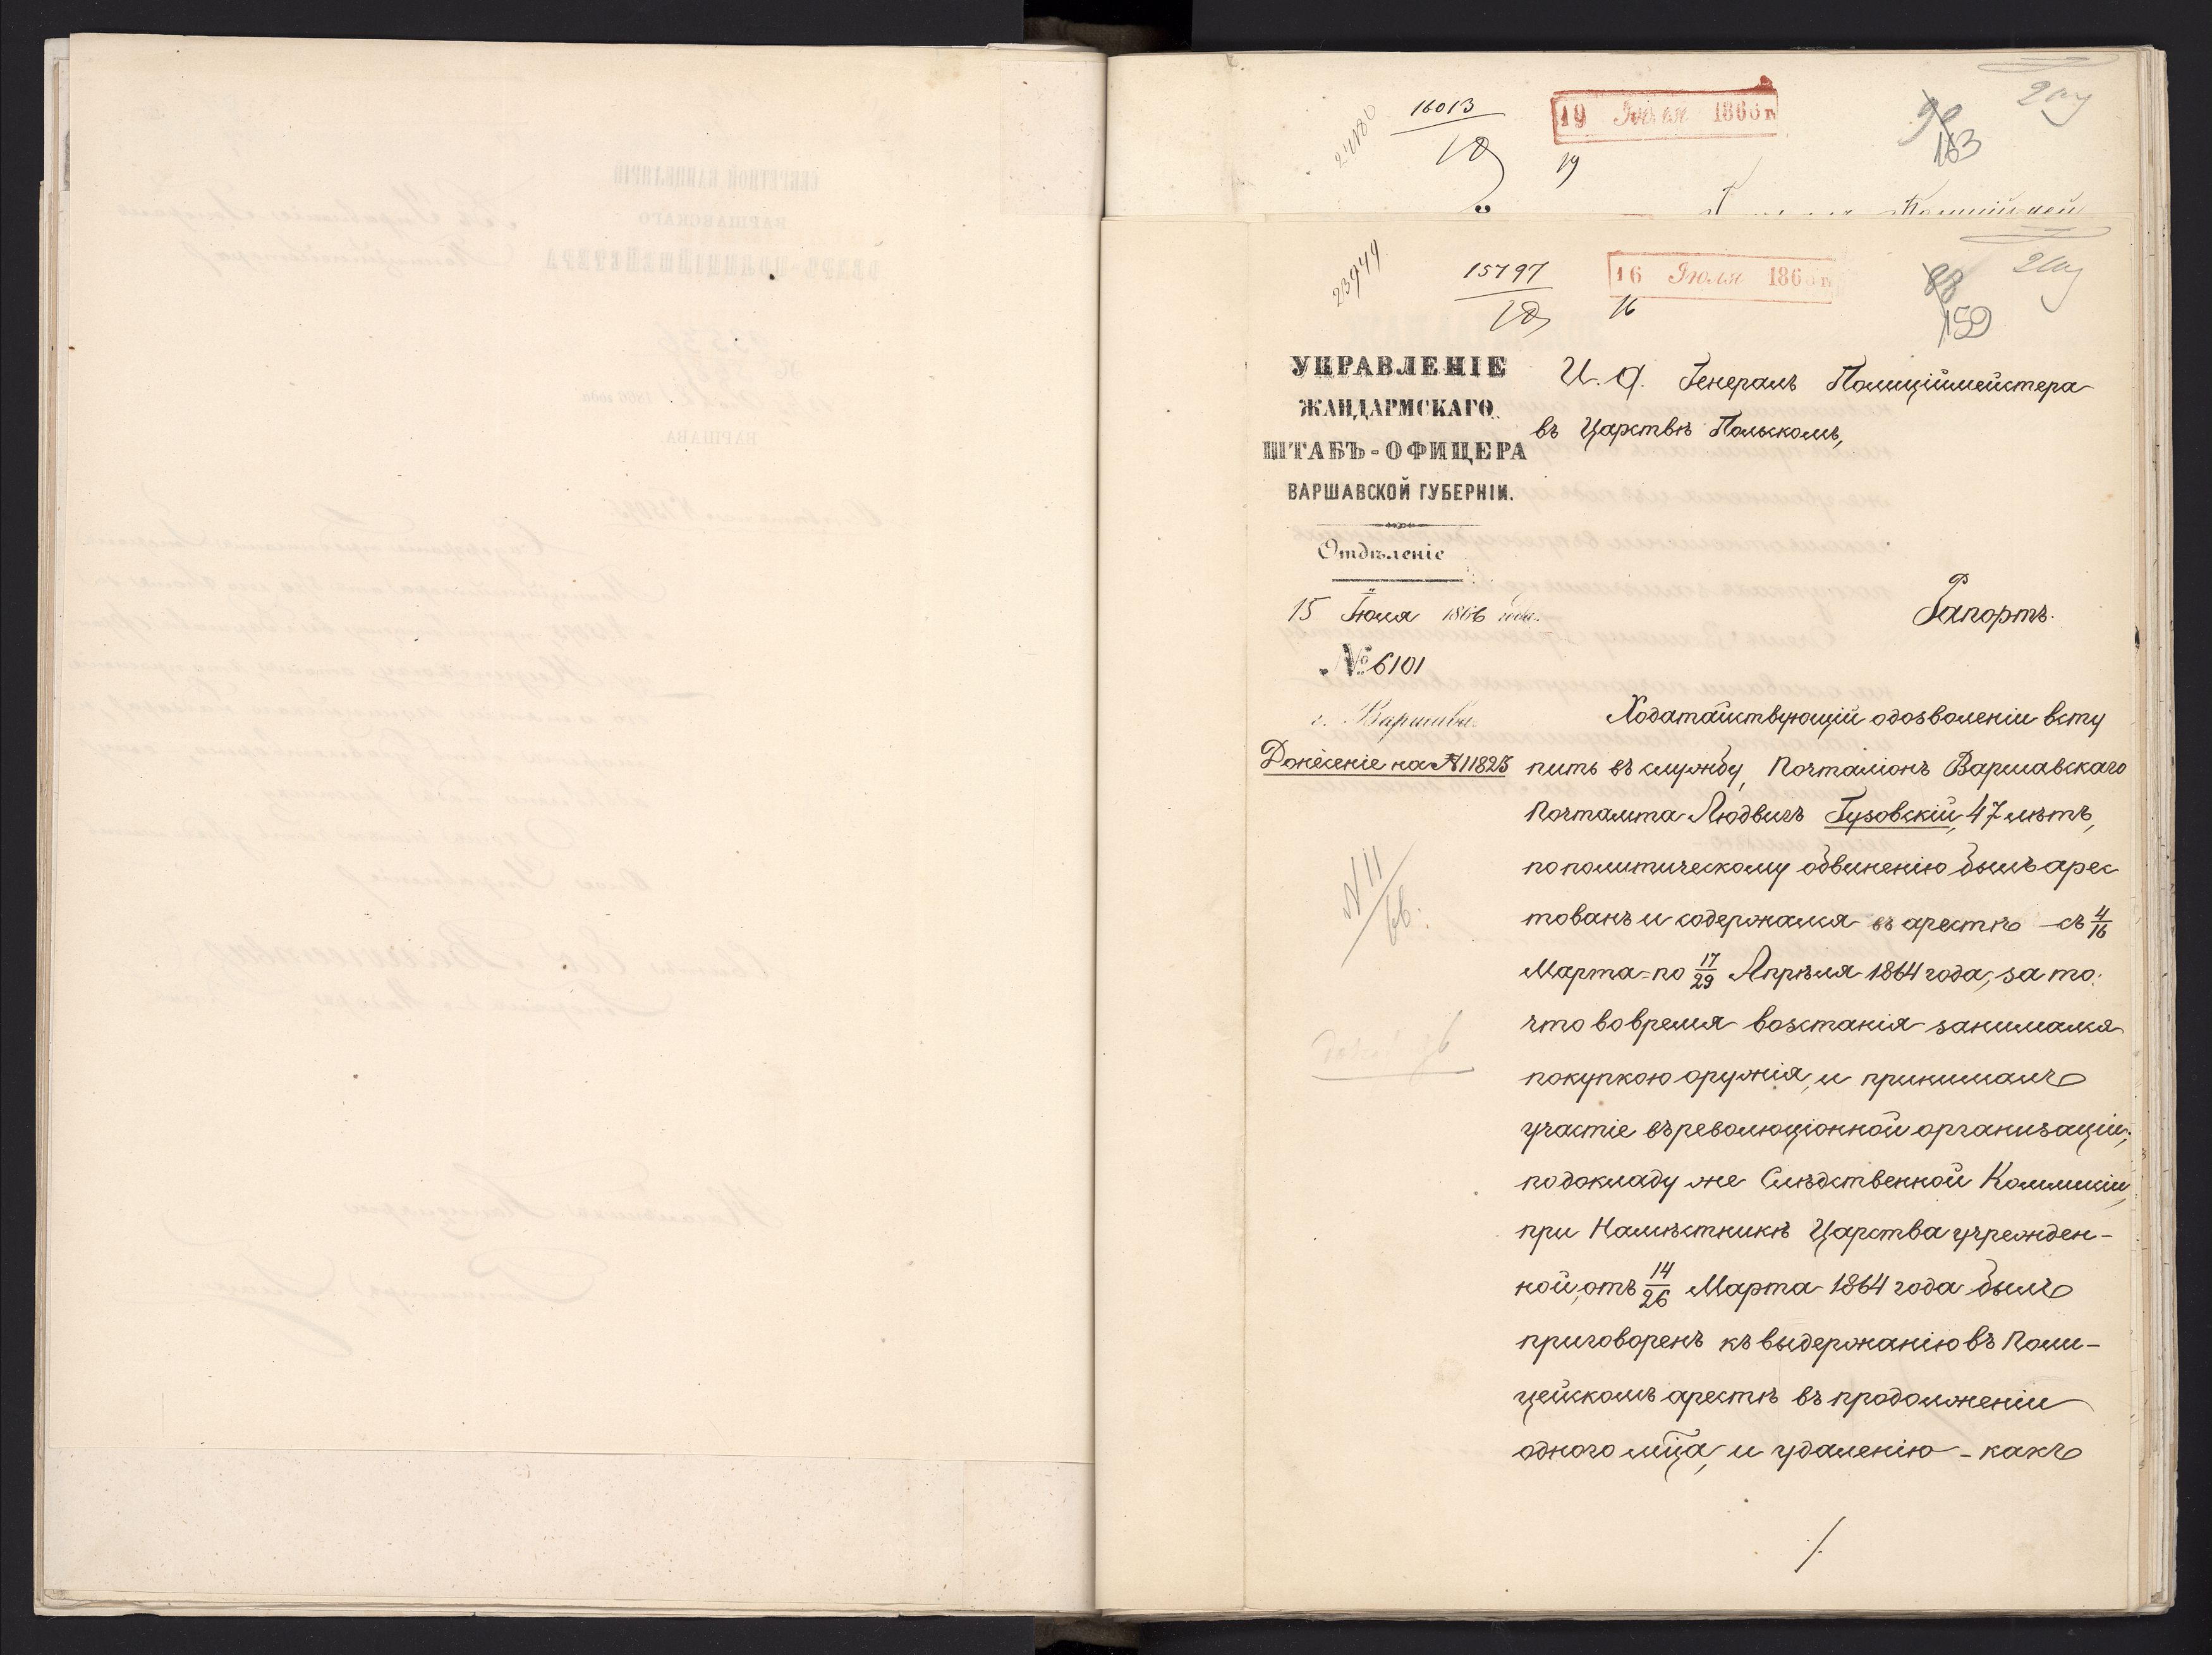 24180
16013
19 Июля 1866 г.
19
163
23949
15797
16 Июля 186 г.
16
88
159
УПРАВЛЕНІЕ
ЖАНДАРМСКАГО
ШТАБЪ-ОФИЦЕРА
ВАРШАВСКОЙ ГУБЕРНІИ.
Отдѣленіе
15 Іюля 1866 года.
№ 6101
г. Варшава.
Донесеніе на №11823
N 11/66.
И. д. Генералъ Полиціймейстера
въ Царствѣ Польскомъ,
Рапортъ.
Ходатайствующій о дозволеніи всту
пить въ службу, Почталіонъ Варшавскаго
Почтамта Людвигъ Гузовскій, 47 лѣтъ,
по политическому обвиненію былъ арес
тованъ и содержался въ арестѣ съ 4/16
Марта по 17/29 Апрѣля 1864 года, за то:
что во время возстанія занимался
покупкою оружія, и принималъ
участіе въ революціонной организаціи;
по докладу же Слѣдственной Коммисіи,
при Намѣстникѣ Царства учрежден-
ной, отъ 14/26 Марта 1864 года былъ
приговоренъ къ выдержанію въ Поли-
цейскомъ арестѣ въ продолженіи
одного мѣца, и удаленію - какъ